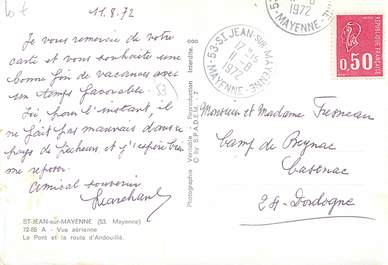 11.8.72
Je vous remercie de votre
carte et vous souhaite une
bonne fin de vacances avec
un temps favorable.
Ici, pour l'instant, il
ne fait pas mauvais dans ce
pays de pêcheurs et j'espère bien
me reposer.
Amical souvenir
Marchand
53
ST-JEAN-sur-MAYENNE (53. Mayenne)
72-85 A - Vue aérienne
Le Pont et la route d'Andouillé.
Photographie Véritable - Reproduction Interdite.
© by S.P.A.D.E.M.
53-ST JEAN SUR MAYENNE
17 H 15
11-8
1972
MAYENNE
1972
53-MAYENNE
REPUBLIQUE FRANCAISE
0,50
Monsieur et Madame Fresneau
Camp de Beynac
Cazenac
24-Dordogne